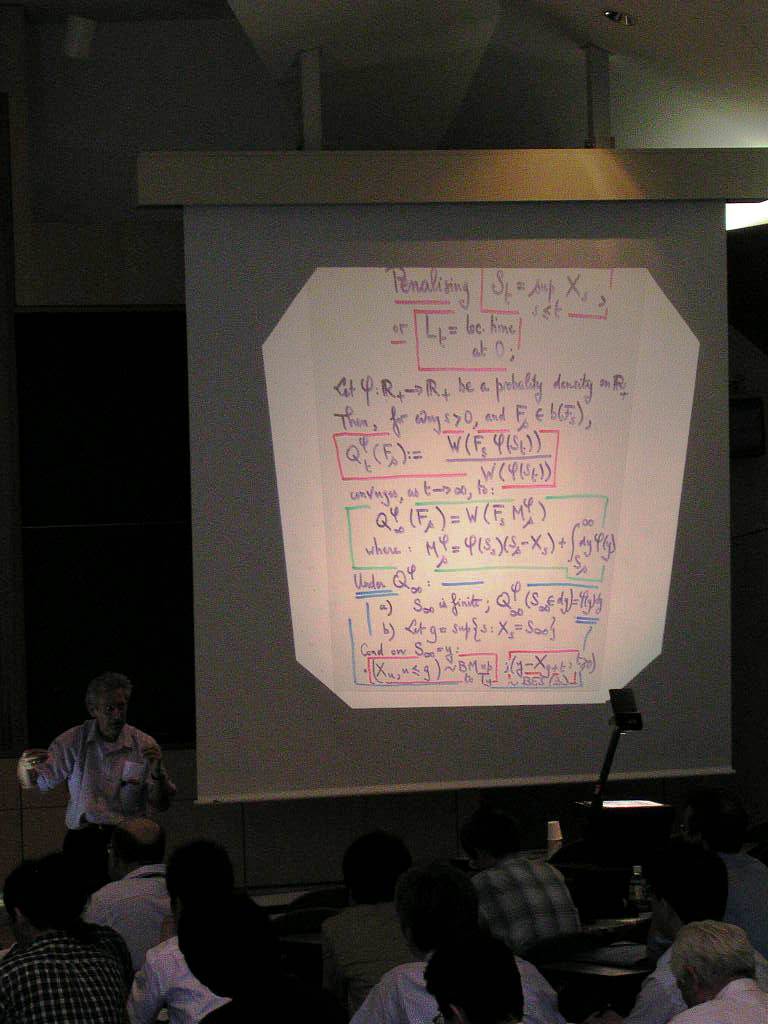 Penalising S_t = sup X_s ,
s≤t
or L_t = loc. time
at 0 ;
Let φ: R_+ → R_+ be a probality density on R_+
Then, for every s>0, and F_s ∈ b(F_s),
Q_t^φ (F_s) := W(F_s φ(S_t))
W(φ(S_t))
converges, as t→∞, to:
Q_∞^φ (F_s) = W(F_s M_s^φ)
where: M_s^φ = φ(S_s)(S_s - X_s) + ∫_{S_s}^∞ dy φ(y)
Under Q_∞^φ :
a) S_∞ is finite ; Q_∞^φ (S_∞ ∈ dy) = φ(y)dy
b) Let g = sup{s : X_s = S_∞}
Cond on S_∞ = y :
(X_u, u ≤ g) ~ BM up to T_y ; (y - X_{g+t}, t≥0)
~ BES(3)